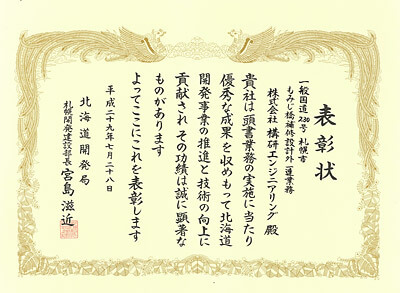 表彰状
一般国道230号 札幌市
もみじ橋補修設計外一連業務
株式会社 構研エンジニアリング 殿
貴社は頭書業務の実施に当たり
優秀な成果を収めもって北海道
開発事業の推進と技術の向上に
貢献され その功績は誠に顕著な
ものがあります
よってここにこれを表彰します
平成二十九年七月二十八日
北海道開発局
札幌開発建設部長 宮島滋近